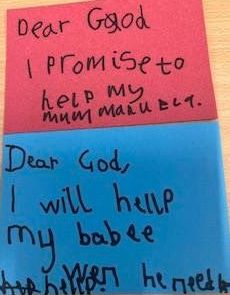 Dear Good
I Promise to
help my
mum
Dear God,
I will hellp
my babee
Wen he need
help